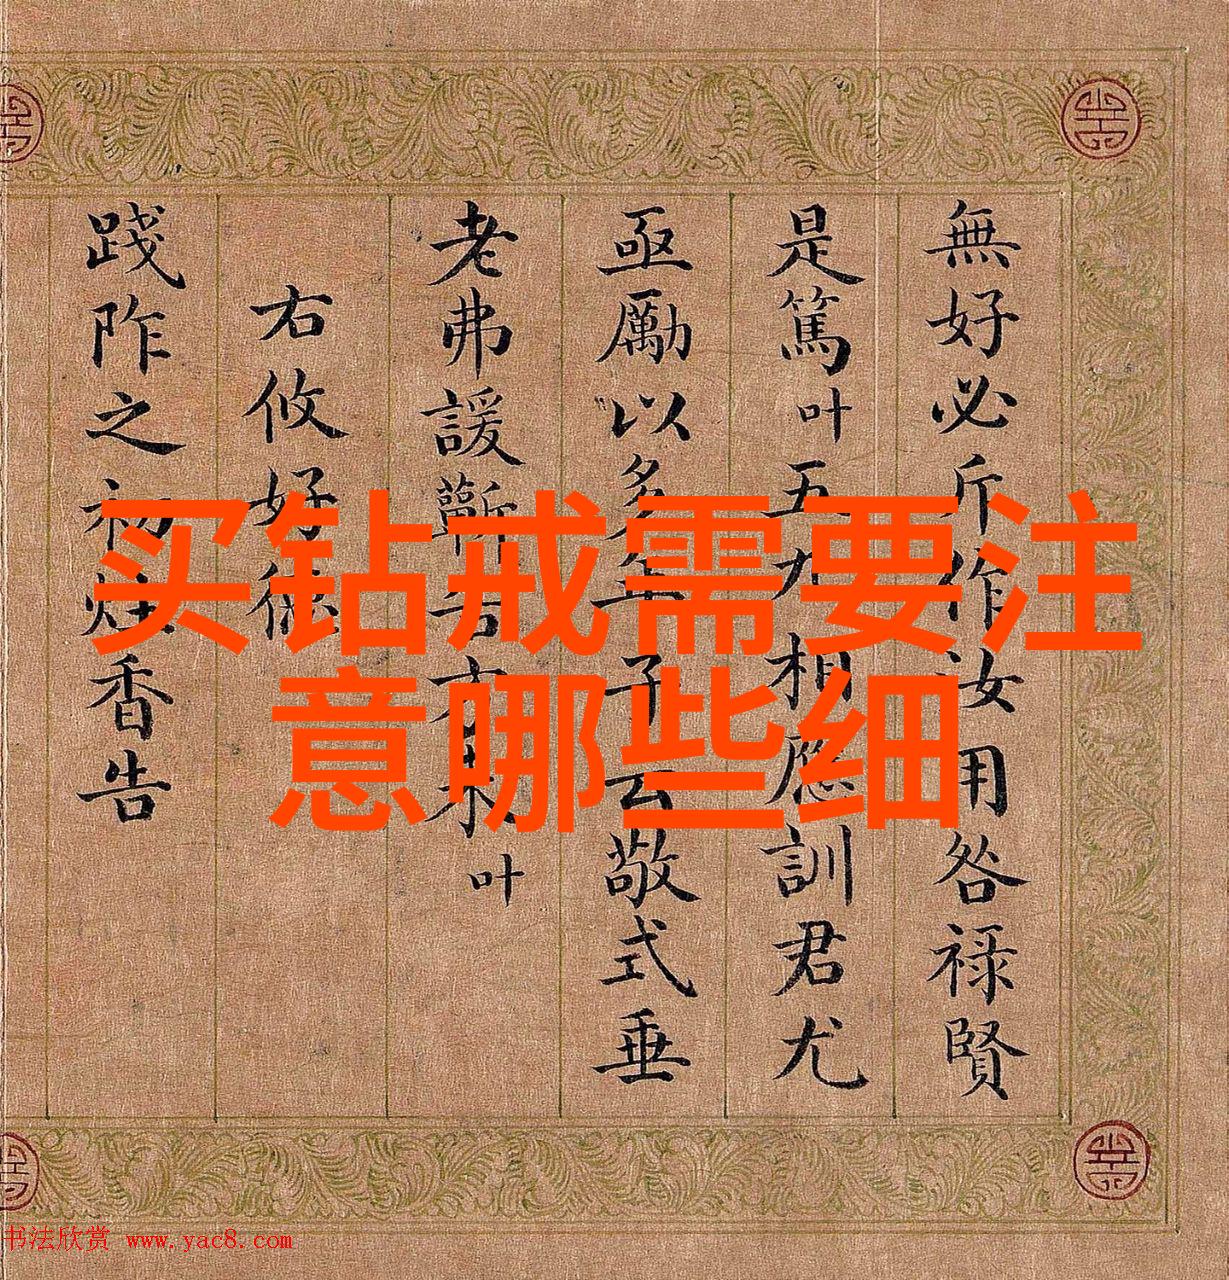 無好必斤作汝用咎祿賢
是篤叶五九相應訓君尤
亟勵以多年予云敬式垂
老弗諼蘄言有末叶
右攸好德
踐阼之初炷香告
买钻戒需要注
意哪些细
书法欣赏 www.yac8.com